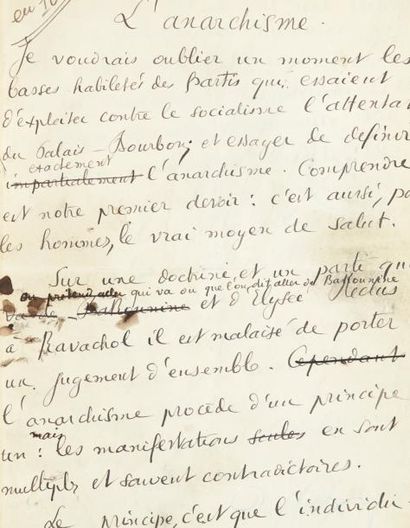 en 10
L'anarchisme.
Je voudrais oublier un moment les
basses habiletés des partis qui essaient
d'exploiter contre le socialisme l'attenta
du Palais-Bourbon; et essayer de definir
exactement
impartialement l'anarchisme. Comprendre
est notre premier devoir: c'est aussi, po
les hommes, le vrai moyen de salut.
Sur une doctrine et un parti qu
ou prétend aller qui va ou que l'on dit aller de Bakounine
va de Bakounine et d'Elysée Reclus
à Ravachol il est malaisé de porter
un jugement d'ensemble. Cependant
l'anarchisme procède d'un principe
mais
un: les manifestations seules en sont
multiples et souvent contradictoires.
Le principe, c'est que l'individu